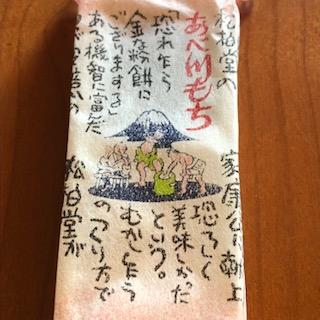 松柏堂の
あべ川もち
家康公に献上
「恐れ乍ら
金な粉餅に
ござりまする」
ある機智に富んだ
恐ろしく
美味しかった
という。
むかし乍ら
のつくり方で
松柏堂が